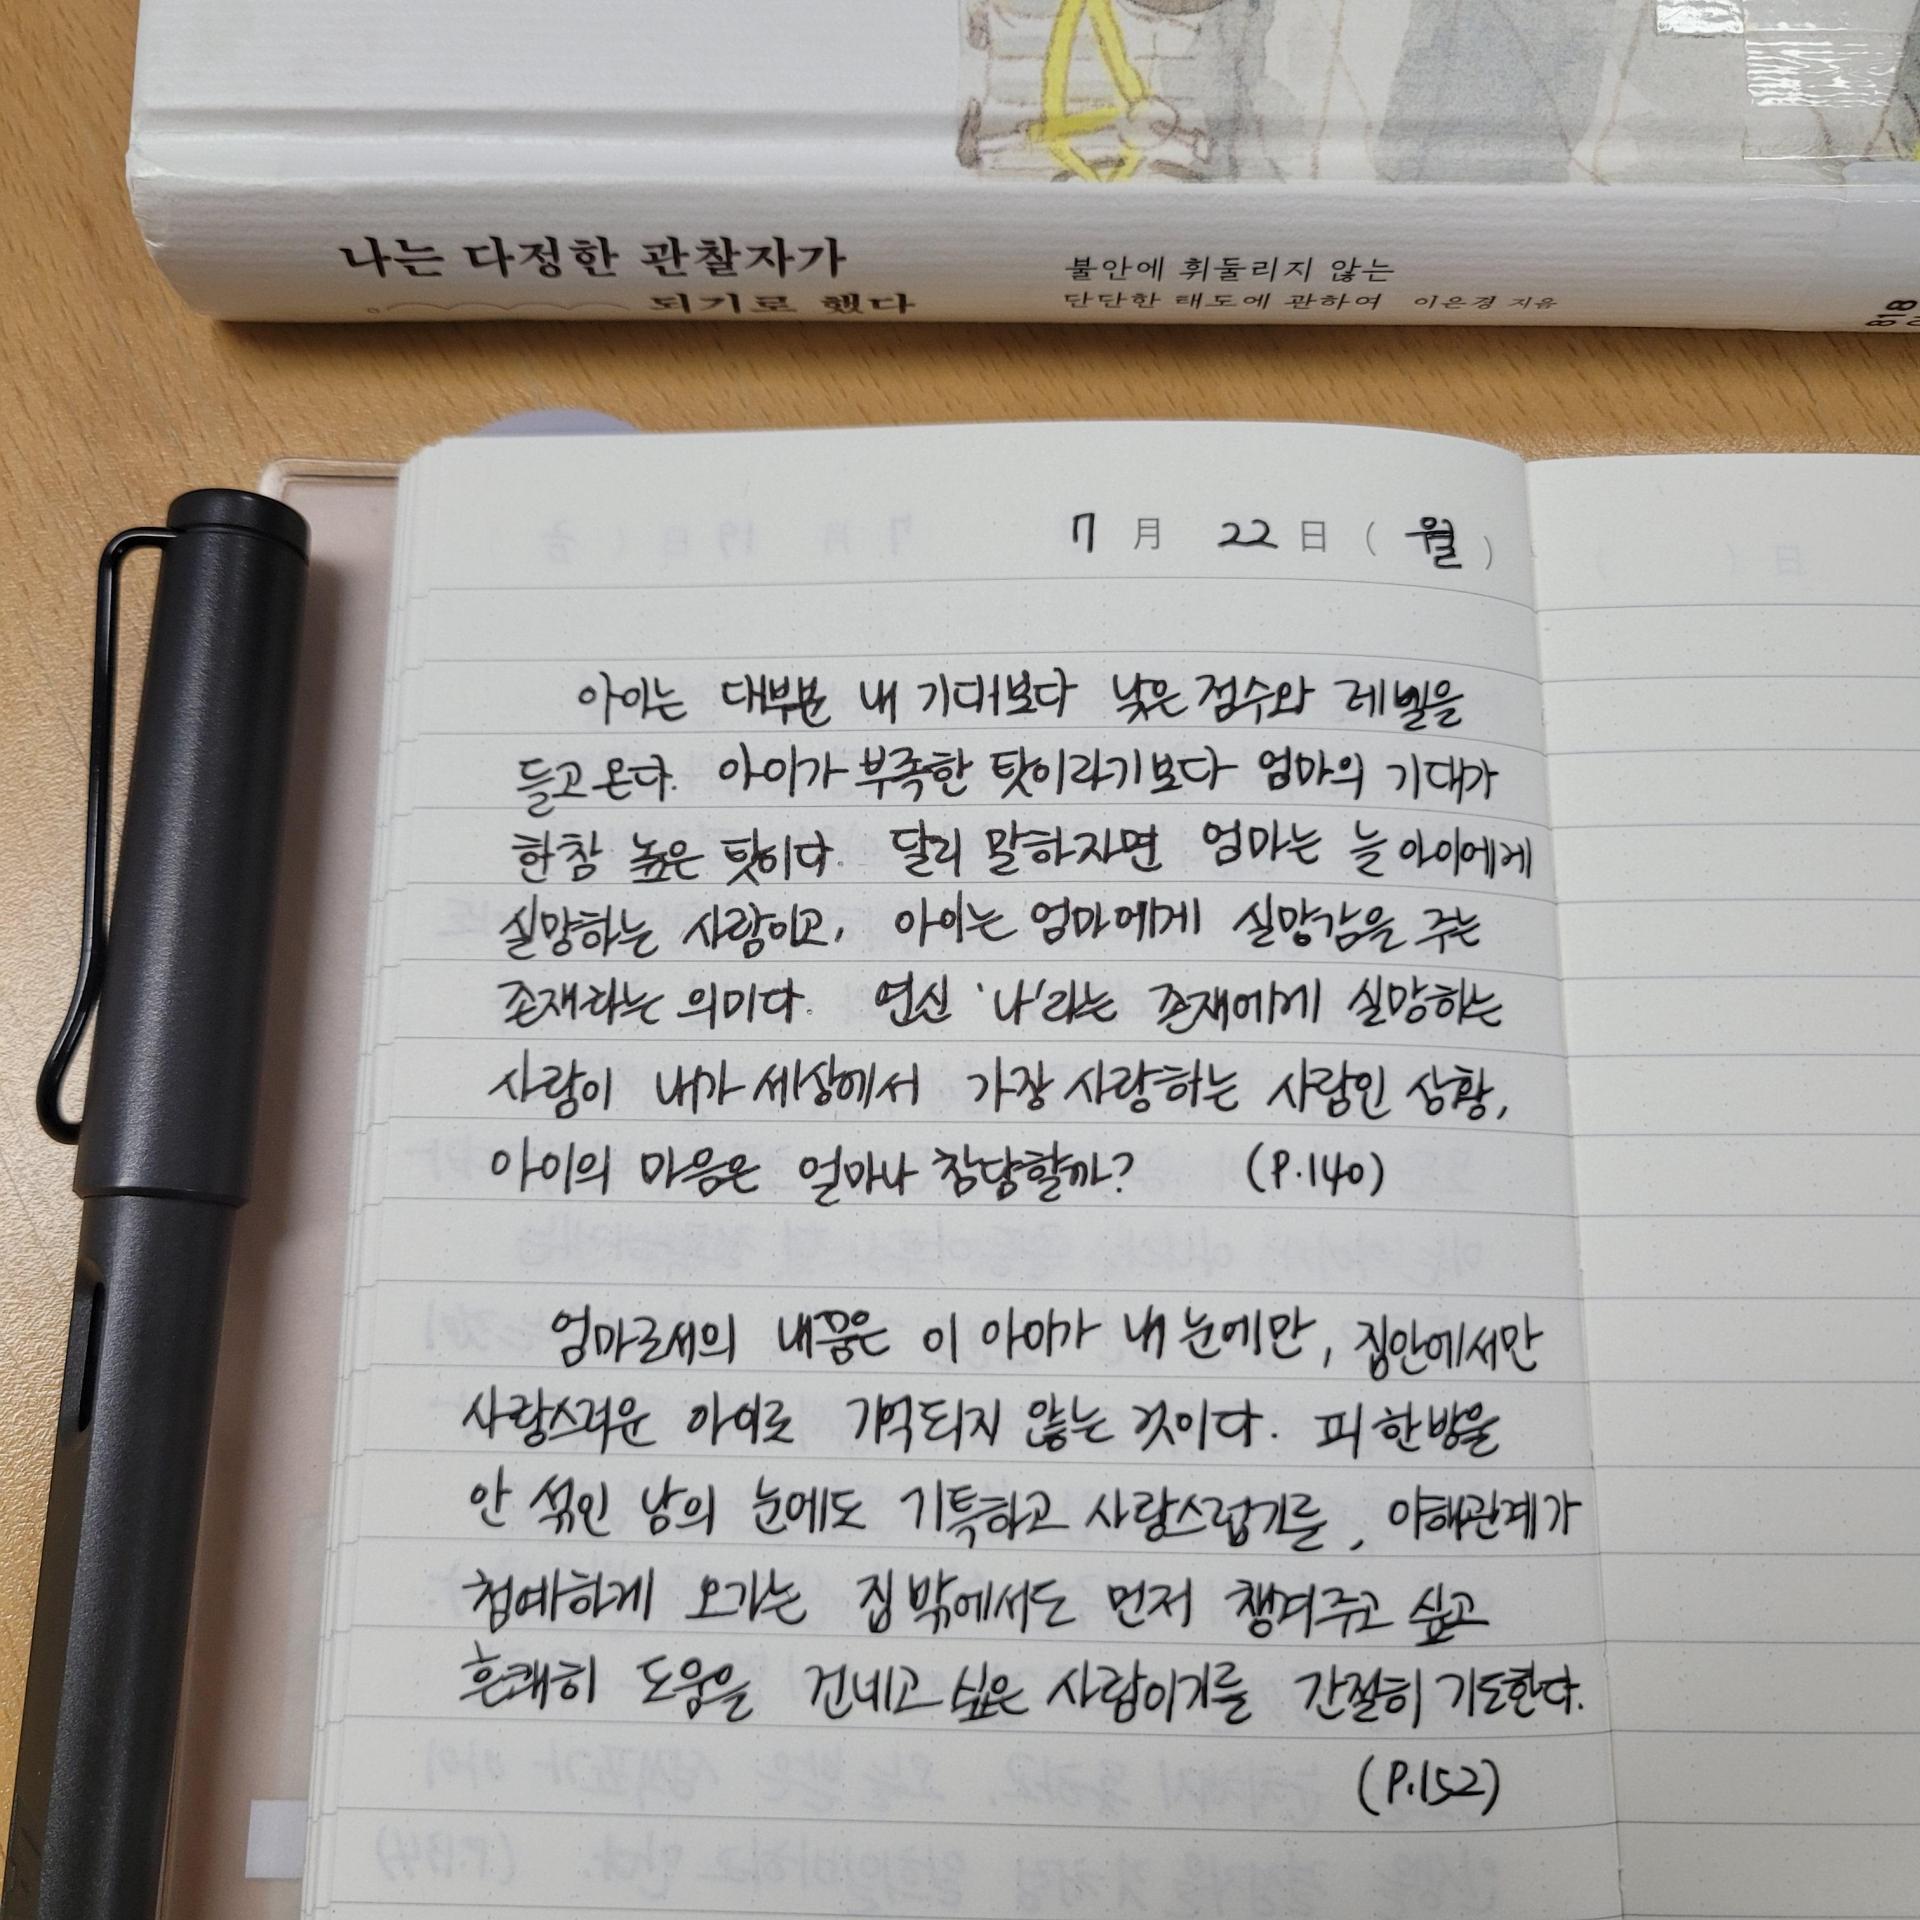 나는 다정한 관찰자가
되기로 했다
불안에 휘둘리지 않는
단단한 태도에 관하여 이은경 지음
818
7 月 22 日 ( 월 )
아이는 대부분 내 기대보다 낮은 점수와 레벨을
들고 온다. 아이가 부족한 탓이라기보다 엄마의 기대가
한참 높은 탓이다. 달리 말하자면 엄마는 늘 아이에게
실망하는 사람이고, 아이는 엄마에게 실망감을 주는
존재라는 의미다. 연신 '나'라는 존재에게 실망하는
사람이 내가 세상에서 가장 사랑하는 사람인 상황,
아이의 마음은 얼마나 참담할까? (P.140)
엄마로서의 내 꿈은 이 아이가 내 눈에만, 집안에서만
사랑스러운 아이로 기억되지 않는 것이다. 피 한 방울
안 섞인 남의 눈에도 기특하고 사랑스럽기를, 이해관계가
첨예하게 오가는 집 밖에서도 먼저 챙겨주고 싶고
흔쾌히 도움을 건네고 싶은 사람이기를 간절히 기도한다.
(P.152)